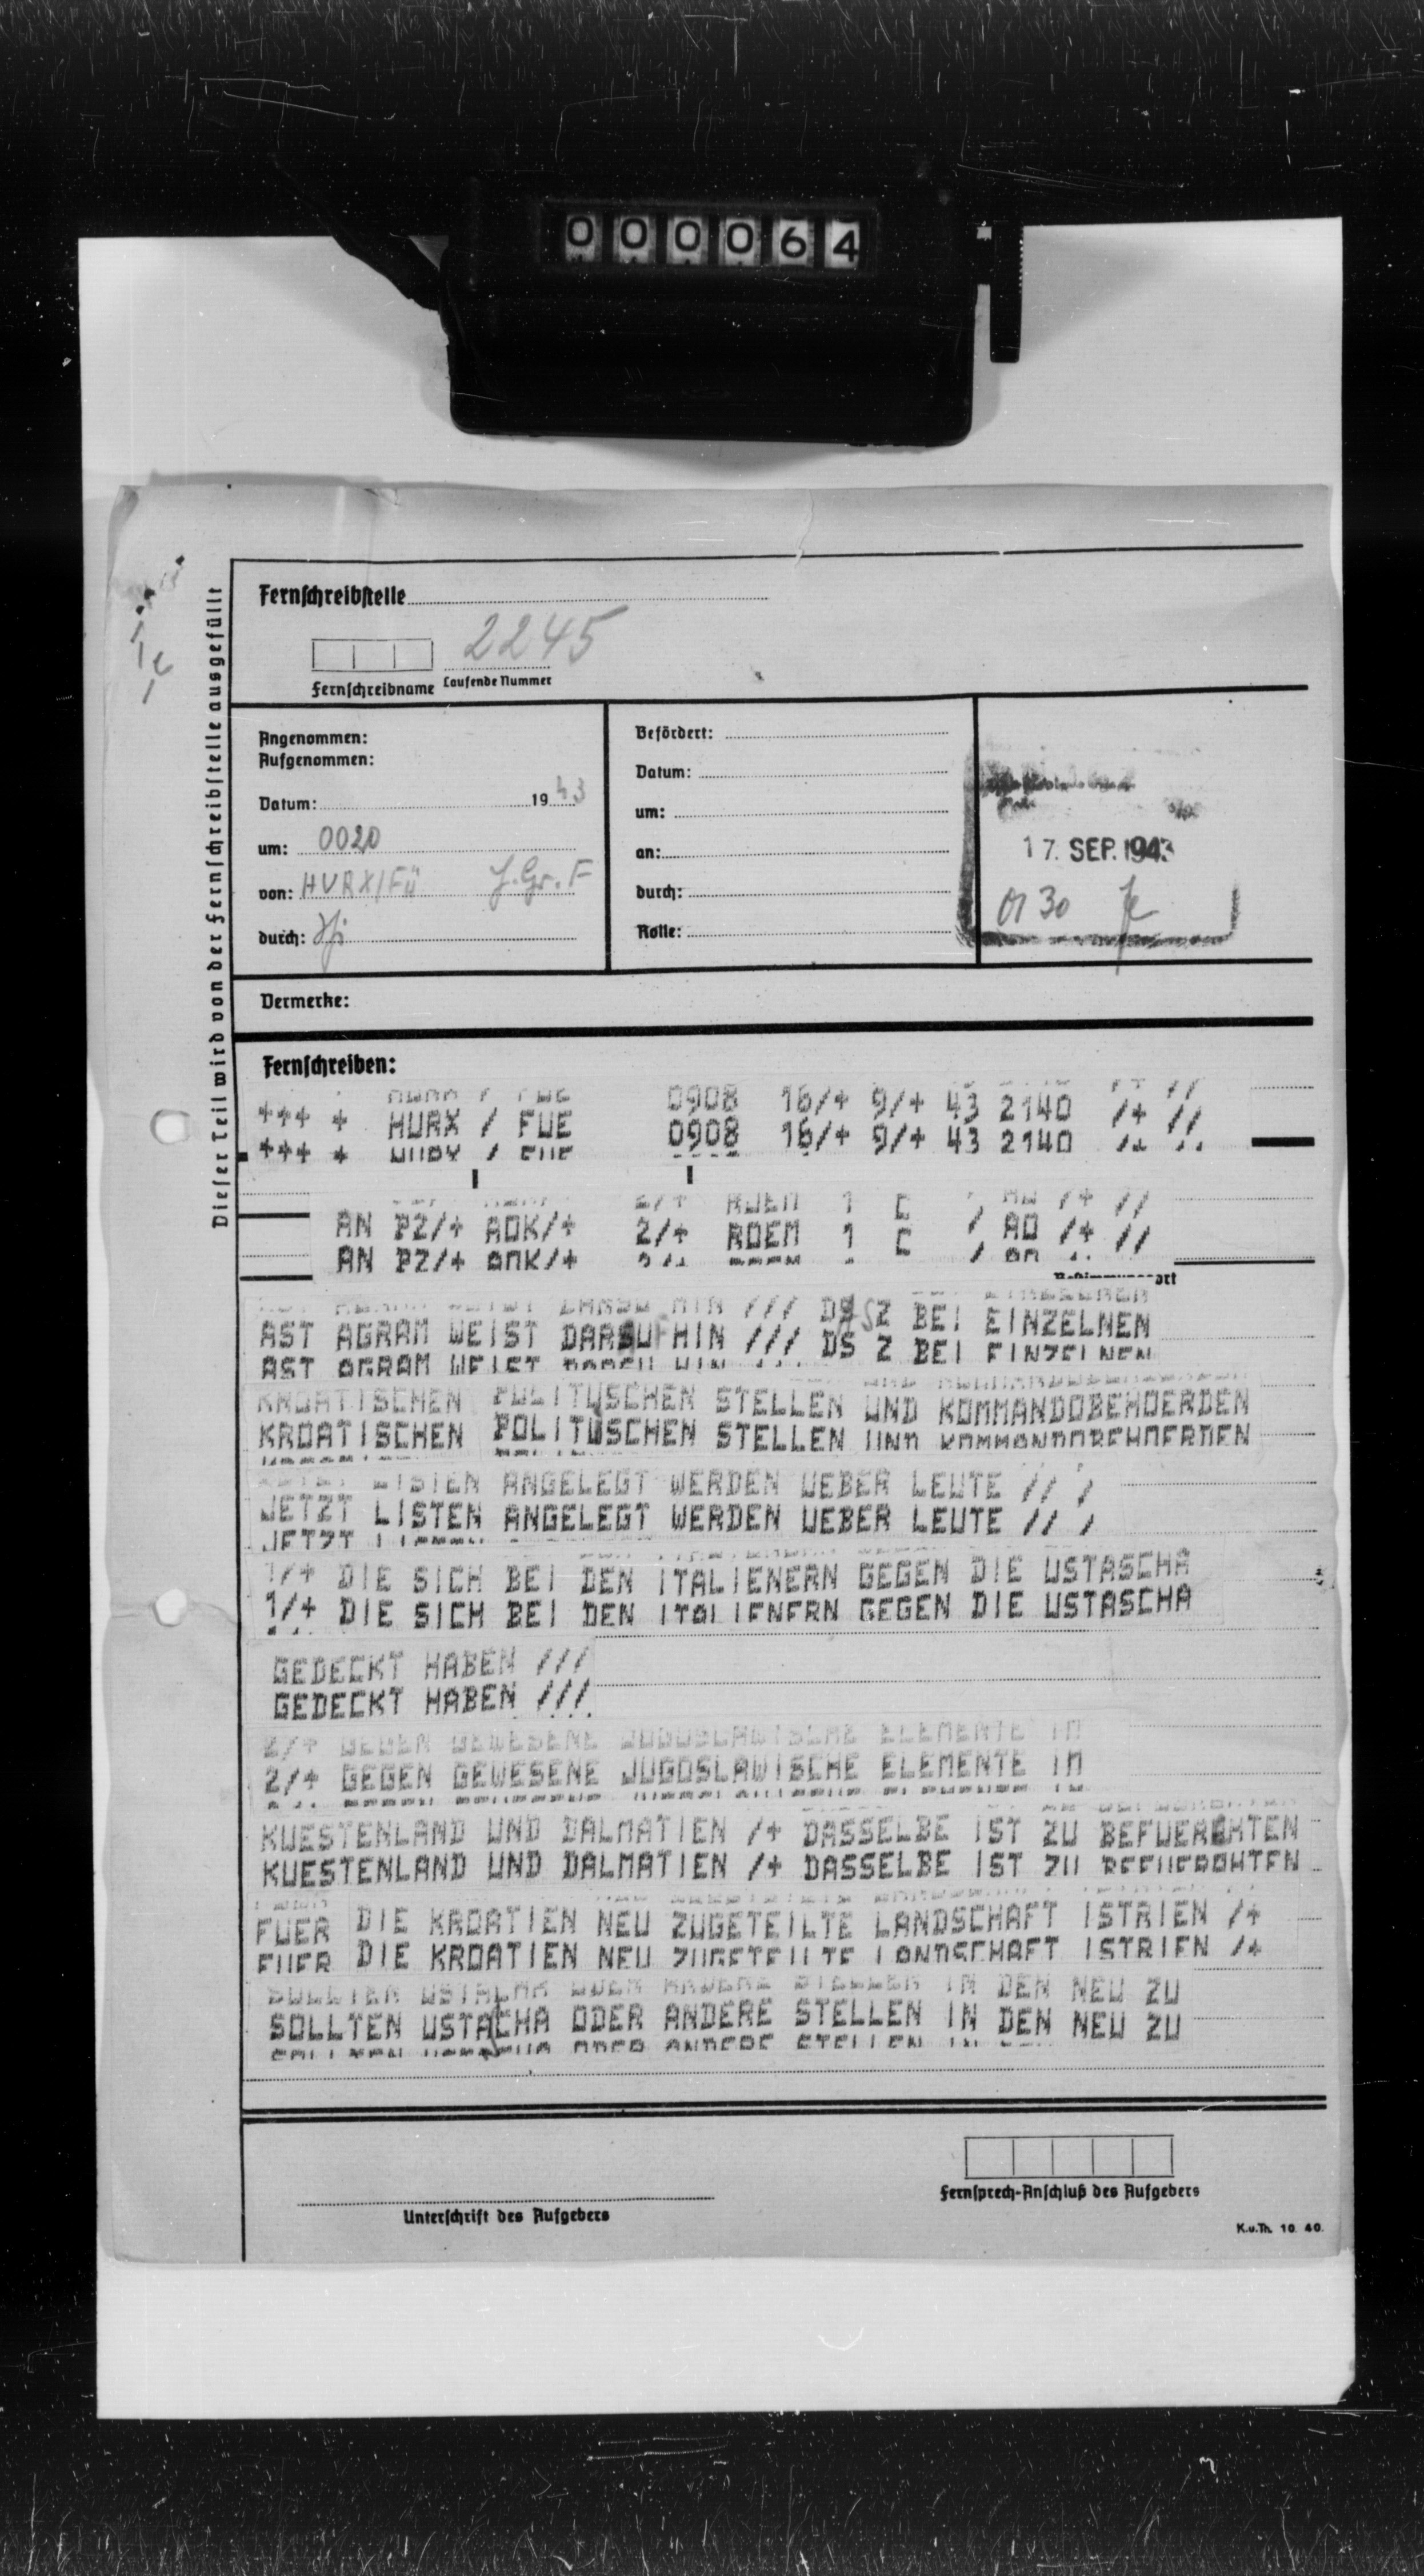 000064
Fernschreibstelle
2245
Fernschreibname Laufende Nummer
Dieser Teil wird von der Fernschreibstelle ausgefüllt
Angenommen:
Aufgenommen:
Datum: 1943
um: 0020
von: HURX/Fü
durch:
Befördert:
Datum:
um:
an:
durch:
Rolle:
17. SEP. 1943
0130
Vermerke:
Fernschreiben:
+++ + HURX / FUE 0908 16/+ 9/+ 43 2140 /+ //
AN PZ/+ AOK/+ 2/+ ROEM 1 C / AO /+ //
AST AGRAM WEIST DARAUF HIN /// DS Z BEI EINZELNEN
KROATISCHEN POLITUSCHEN STELLEN UND KOMMANDOBEHOERDEN
JETZT LISTEN ANGELEGT WERDEN UEBER LEUTE // /
1/+ DIE SICH BEI DEN ITALIENERN GEGEN DIE USTASCHA
GEDECKT HABEN ///
2/+ GEGEN GEWESENE JUGOSLAWISCHE ELEMENTE IM
KUESTENLAND UND DALMATIEN /+ DASSELBE IST ZU BEFUERCHTEN
FUER DIE KROATIEN NEU ZUGETEILTE LANDSCHAFT ISTRIEN /+
SOLLTEN USTACHA ODER ANDERE STELLEN IN DEN NEU ZU
Unterschrift des Aufgebers
Fernsprech-Anschluß des Aufgebers
K.u.Th. 10. 40.